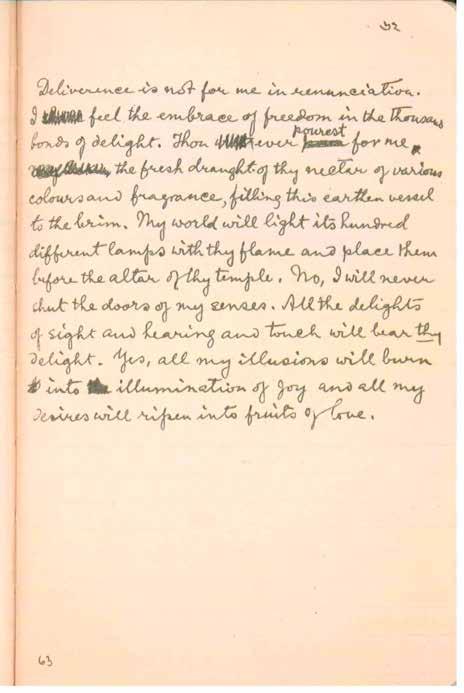 ৩২
Deliverence is not for me in renunciation.
I feel the embrace of freedom in the thousand
bonds of delight. Thou ever pourest for me
the fresh draught of thy nectar of various
colours and fragrance, filling this earthen vessel
to the brim. My world will light its hundred
different lamps with thy flame and place them
before the altar of thy temple. No, I will never
shut the doors of my senses. All the delights
of sight and hearing and touch will bear thy
delight. Yes, all my illusions will burn
into illumination of joy and all my
desires will ripen into fruits of love.
63